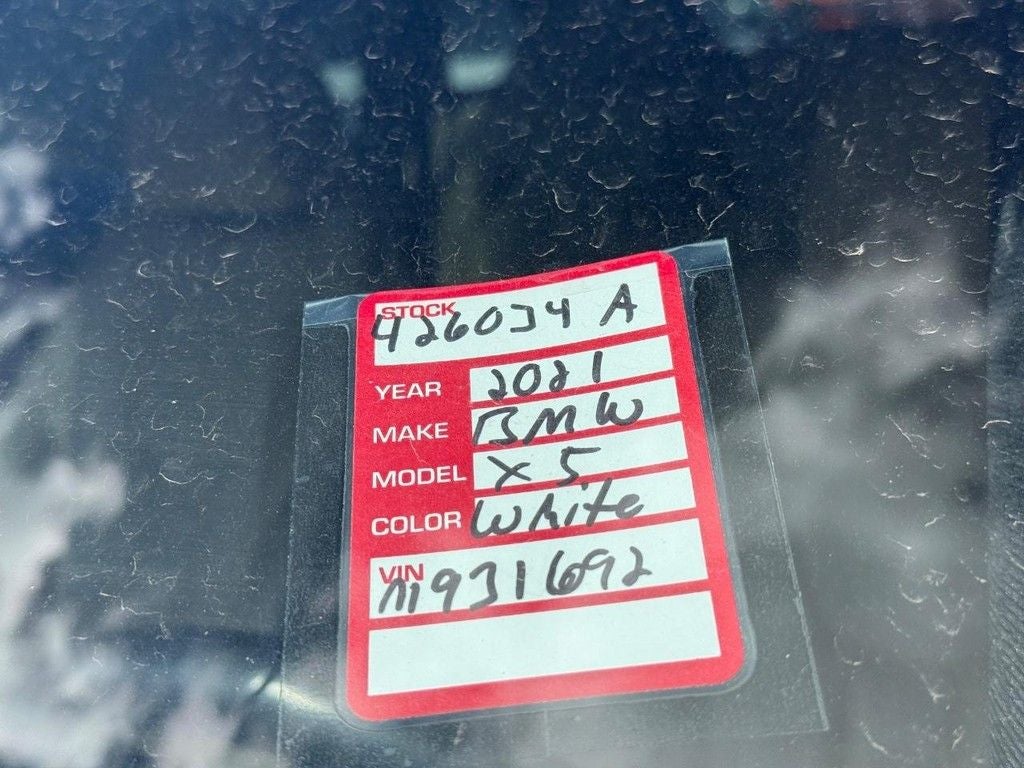 STOCK
426034 A
YEAR 2021
MAKE BMW
MODEL X5
COLOR White
VIN
M931692